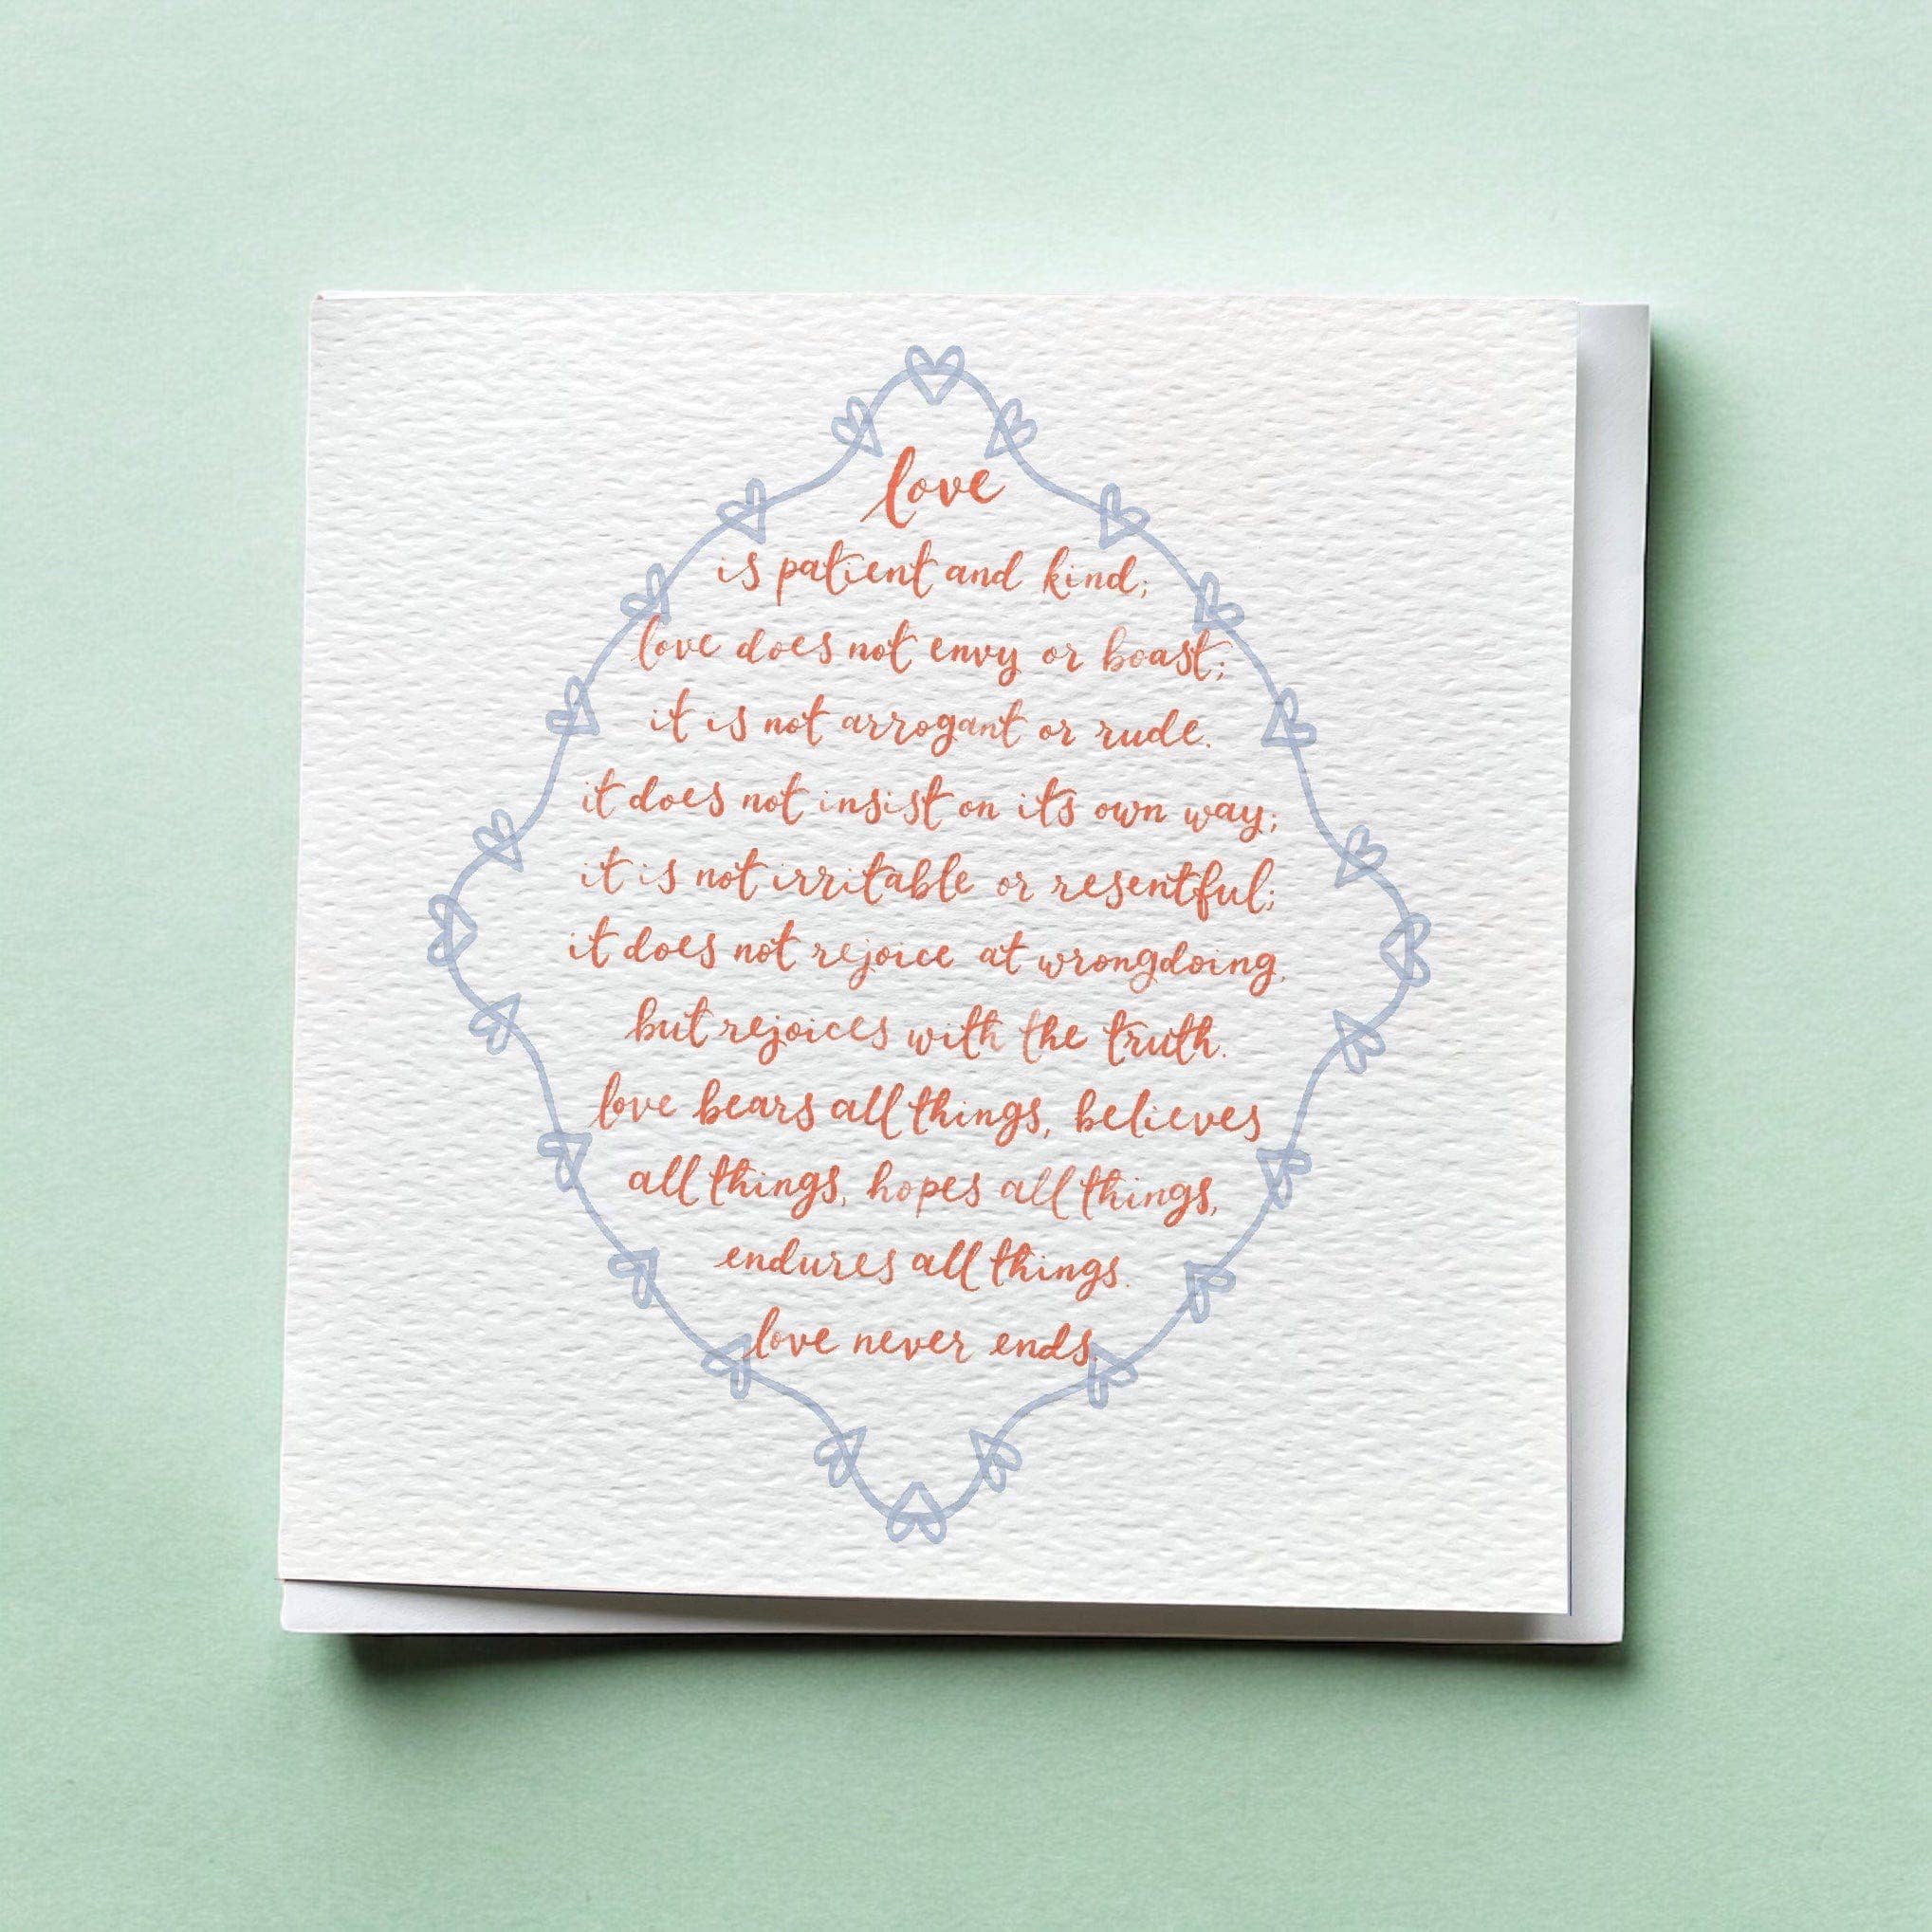 love
is patient and kind;
love does not envy or boast;
it is not arrogant or rude.
it does not insist on its own way;
it is not irritable or resentful;
it does not rejoice at wrongdoing,
but rejoices with the truth.
love bears all things, believes
all things, hopes all things,
endures all things.
love never ends.